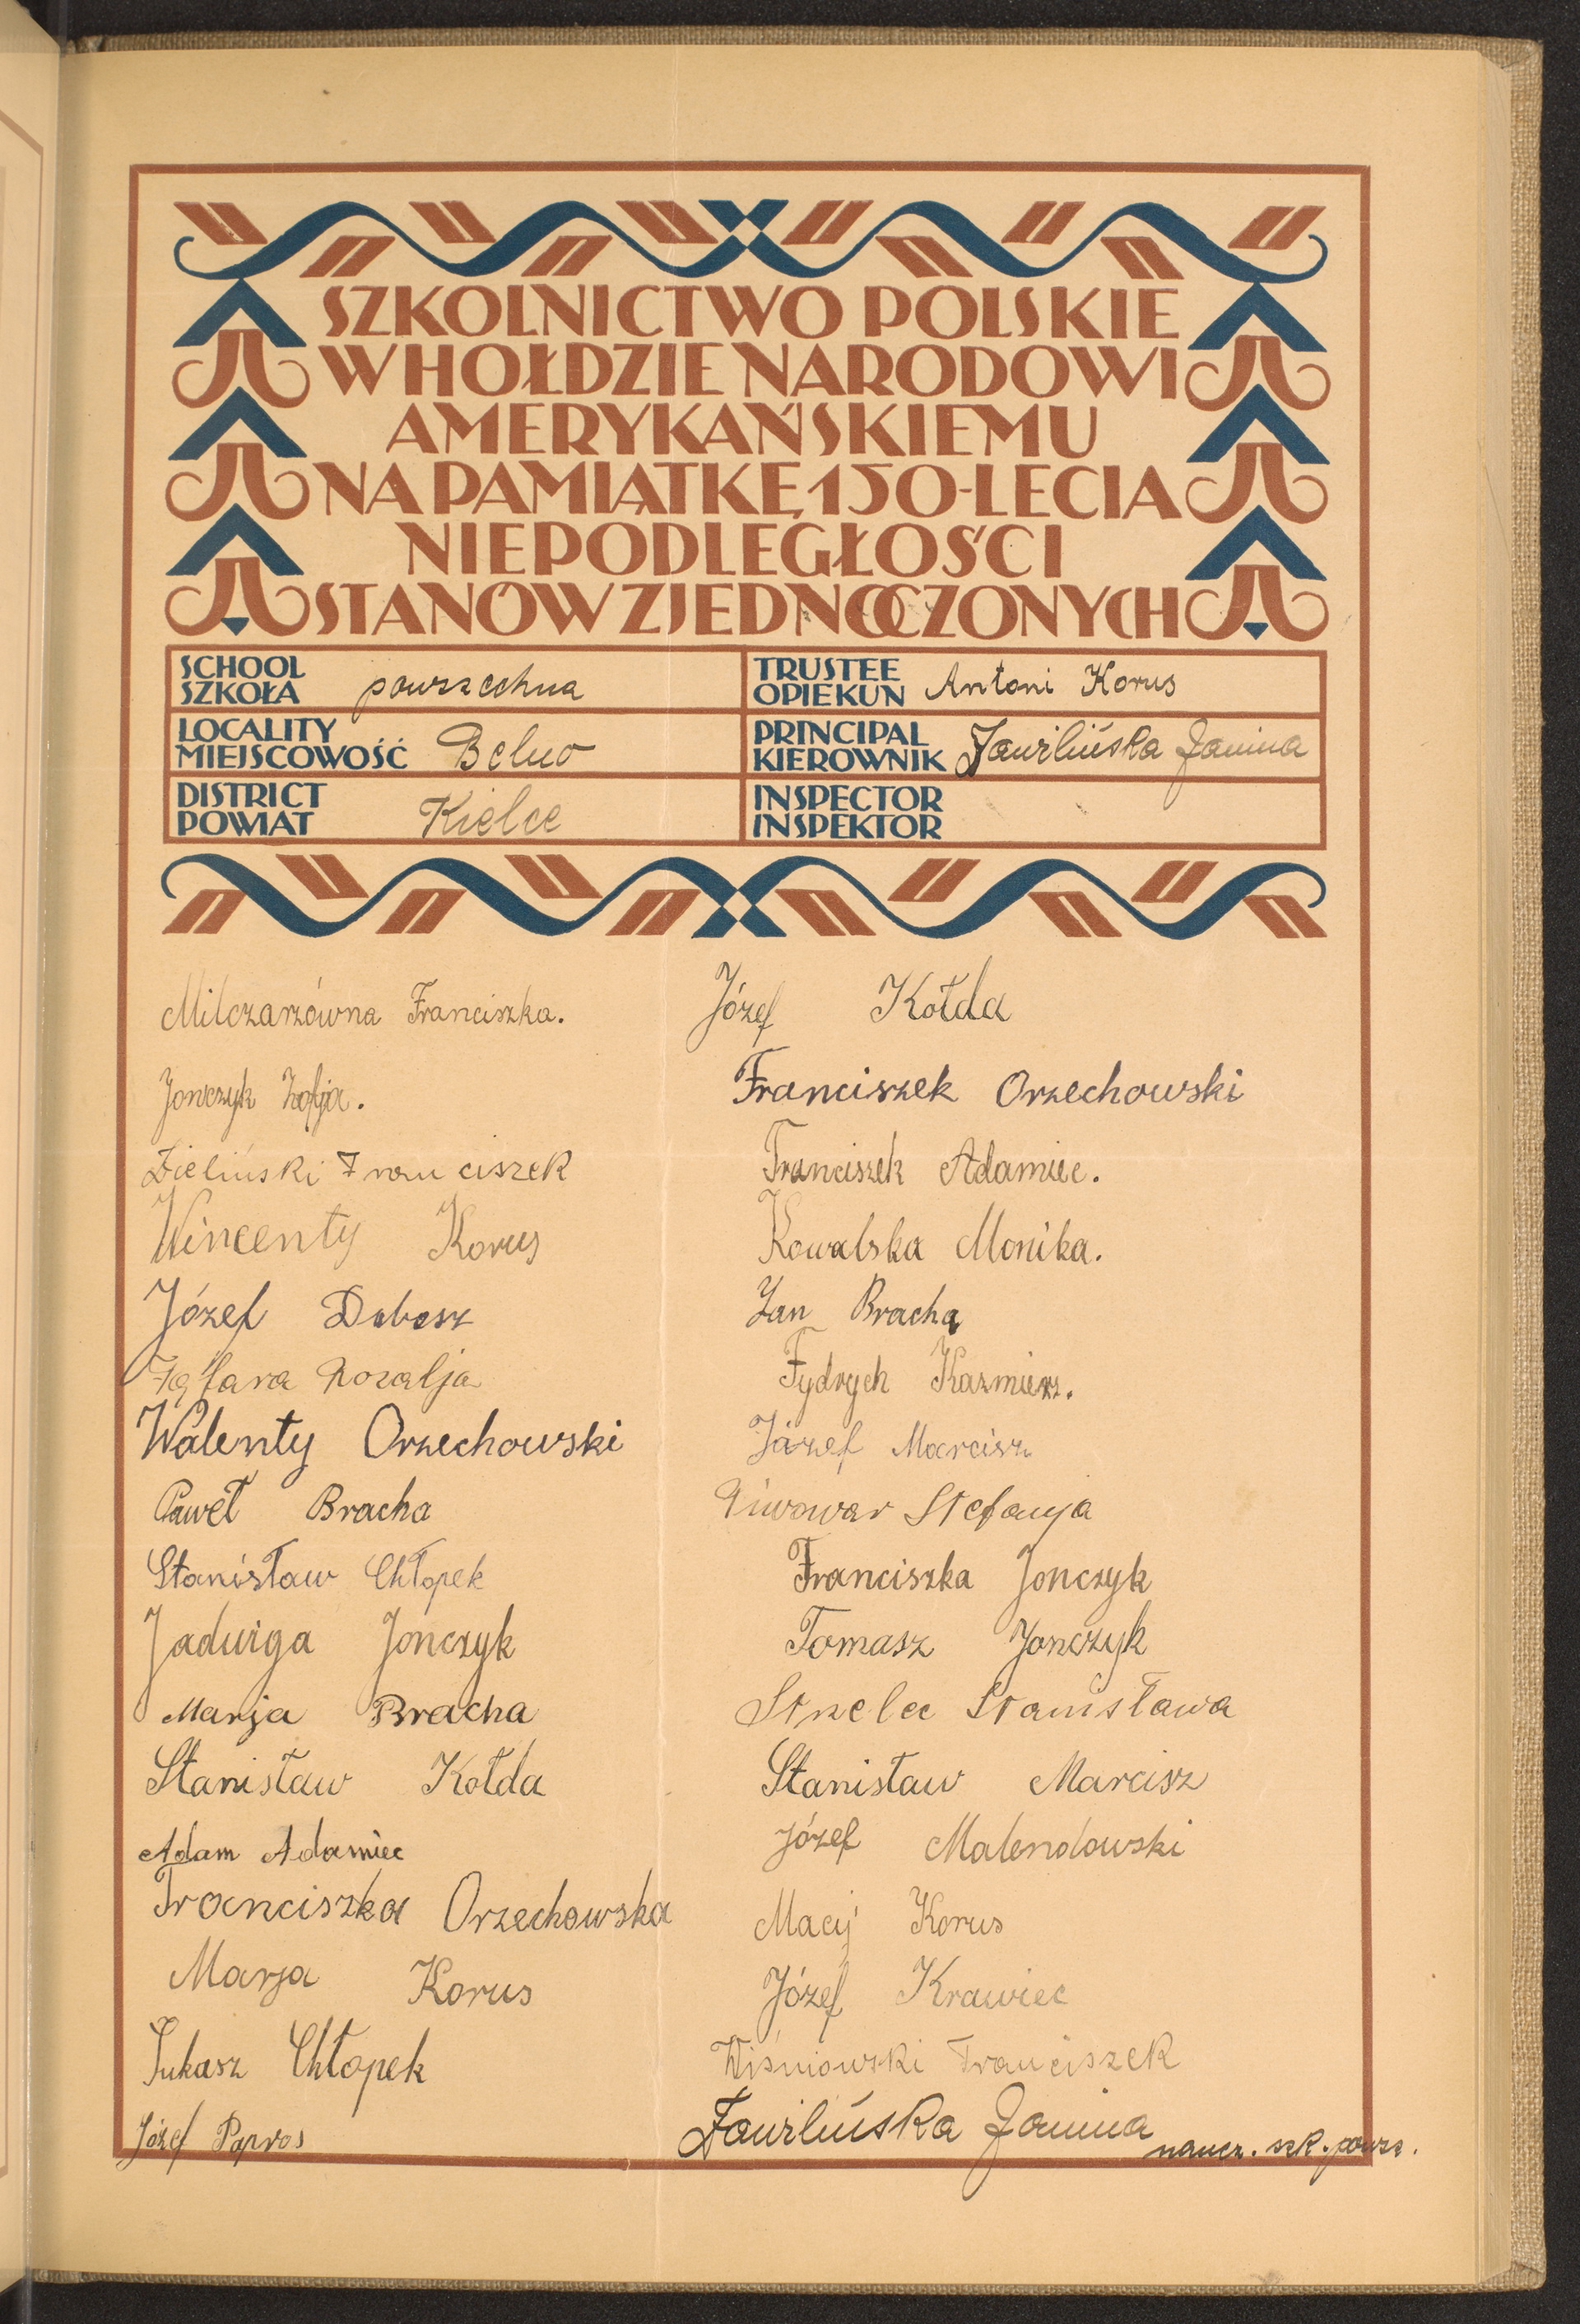 SZKOLNICTWO POLSKIE
W HOŁDZIE NARODOWI
AMERYKAŃSKIEMU
NA PAMIĄTKĘ 150-LECIA
NIEPODLEGŁOŚCI
STANÓW ZJEDNOCZONYCH
SCHOOL
SZKOŁA powszechna
TRUSTEE
OPIEKUN Antoni Korus
LOCALITY
MIEJSCOWOŚĆ Belno
PRINCIPAL
KIEROWNIK Janina
DISTRICT
POWIAT Kielce
INSPECTOR
INSPEKTOR
Milczarzówna Franciszka.
Jonczyk Zofja.
Zieliński Franciszek
Wincenty Korus
Józef Dobosz
Rozalja
Walenty Orzechowski
Paweł Bracha
Stanisław Chłopek
Jadwiga Jończyk
Marja Bracha
Stanisław Kołda
Adam Adamiec
Franciszka Orzechowska
Marja Korus
Łukasz Chłopek
Józef Papros
Józef Kołda
Franciszek Orzechowski
Franciszek Adamiec.
Kowalska Monika.
Jan Bracha
Fydrych Kazmierz.
Józef Marcisz
Piwowar Stefanja
Franciszka Jonczyk
Tomasz Jonczyk
Strzelec Stanisława
Stanisław Marcisz
Józef Malendowski
Macij Korus
Józef Krawiec
Wiśniowski Franciszek
Janina naucz. szk. powsz.